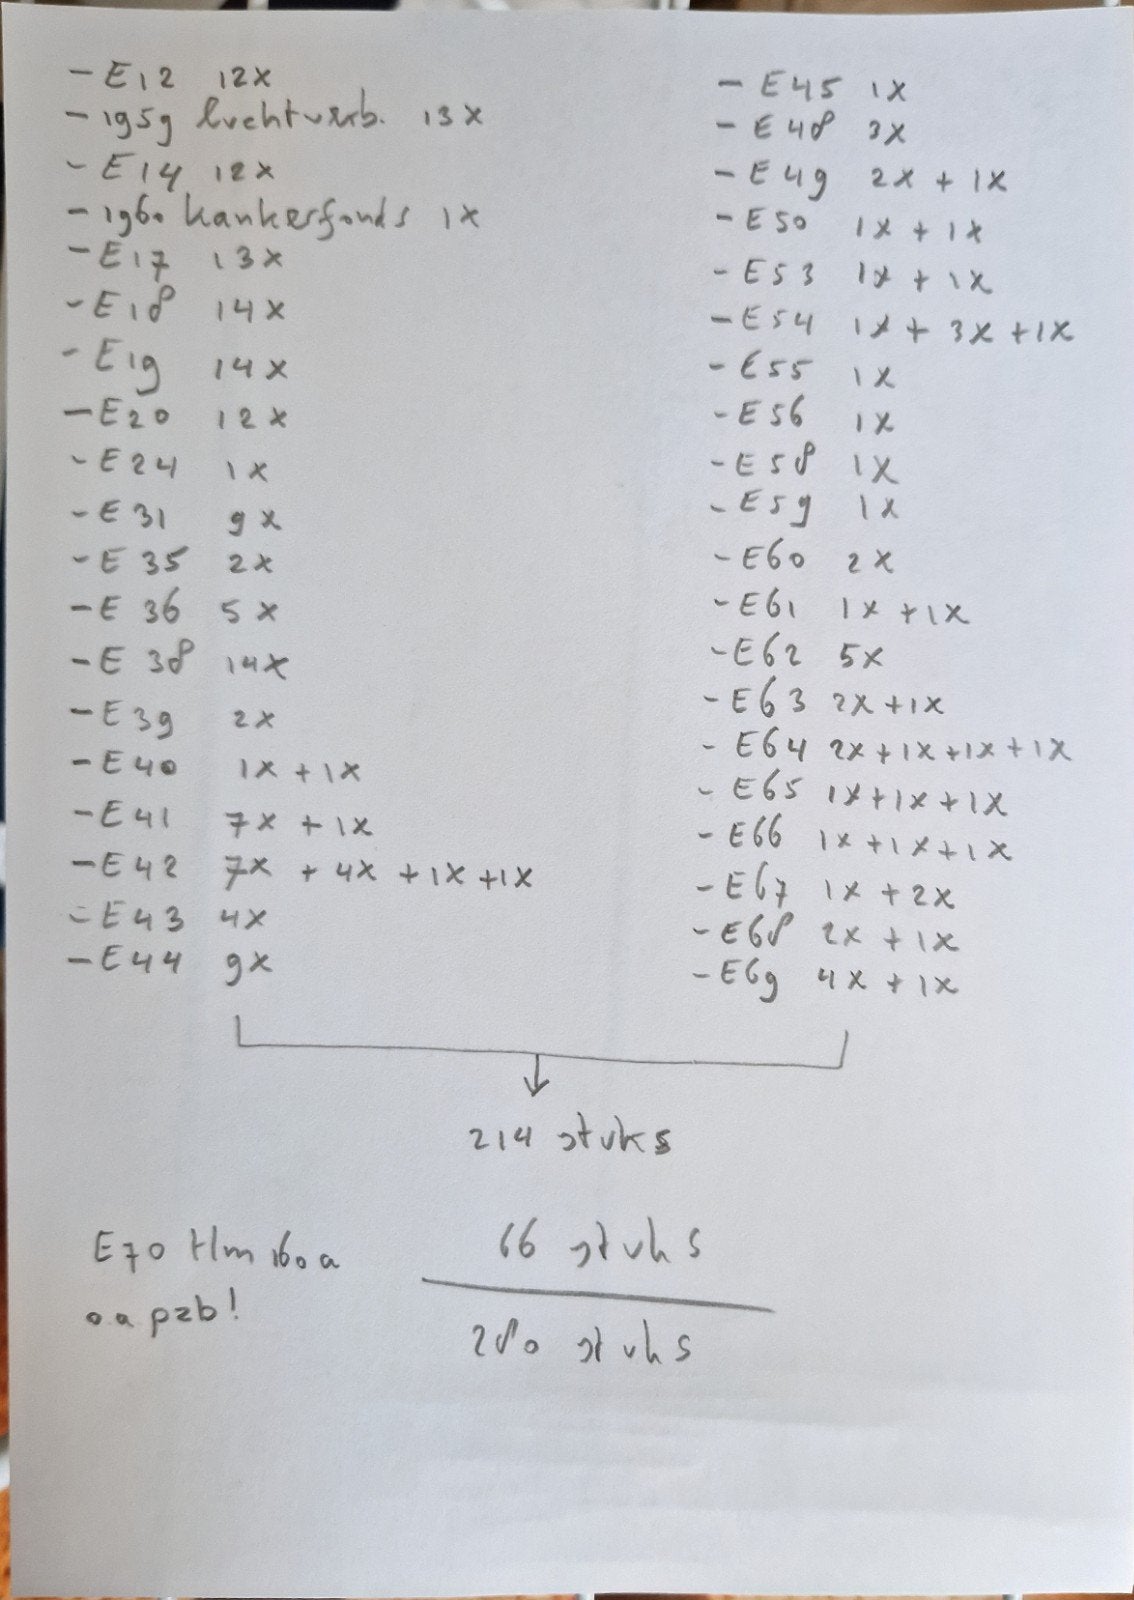 - E12 12x
- 1959 luchtverb. 13x
- E14 12x
- 1960 kankerfonds 1x
- E17 13x
- E18 14x
- E19 14x
- E20 12x
- E24 1x
- E31 9x
- E 35 2x
- E 36 5x
- E 38 14x
- E39 2x
- E40 1x + 1x
- E41 7x + 1x
- E42 7x + 4x + 1x + 1x
- E43 4x
- E44 9x
- E45 1x
- E48 3x
- E49 2x + 1x
- E50 1x + 1x
- E53 1x + 1x
- E54 1x + 3x + 1x
- E55 1x
- E56 1x
- E58 1x
- E59 1x
- E60 2x
- E61 1x + 1x
- E62 5x
- E63 2x + 1x
- E64 2x + 1x + 1x + 1x
- E65 1x + 1x + 1x
- E66 1x + 1x + 1x
- E67 1x + 2x
- E68 2x + 1x
- E69 4x + 1x
214 stuks
E70 t/m 160a
o.a pzb!
66 stuks
280 stuks